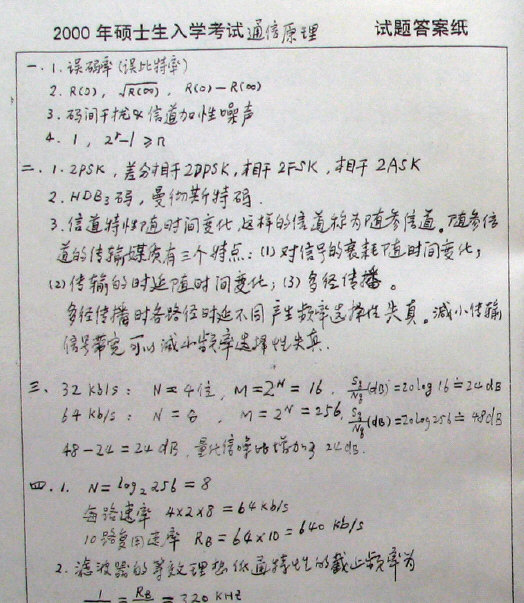 2000 年硕士生入学考试 通信原理 试题答案纸
一. 1. 误码率 (误比特率)
2. R(0), √R(∞), R(0)-R(∞)
3. 码间干扰 & 信道加性噪声
4. 1, 2^r-1≥n
二. 1. 2PSK, 差分相干2DPSK, 相干2FSK, 相干2ASK
2. HDB3码, 曼彻斯特码.
3. 信道特性随时间变化,这样的信道称为随参信道。随参信
道的传输媒质有三个特点:(1)对信号的衰耗随时间变化;
(2)传输的时延随时间变化;(3)多径传播。
多径传播时各路径时延不同产生频率选择性失真。减小传输
信号带宽可以减小频率选择性失真.
三. 32 kb/s: N=4位, M=2^N=16, Sq/Nq(dB)=20log16≐24dB
64 kb/s: N=8, M=2^N=256, Sq/Nq(dB)=20log256≐48dB
48-24=24dB, 量化信噪比增加了24dB.
四. 1. N=log₂256=8
每路速率 4×2×8=64kb/s
10路复用速率 RB=64×10=640 kb/s
2. 滤波器的等效理想低通特性的截止频率为
1 = RB = 320 KHZ